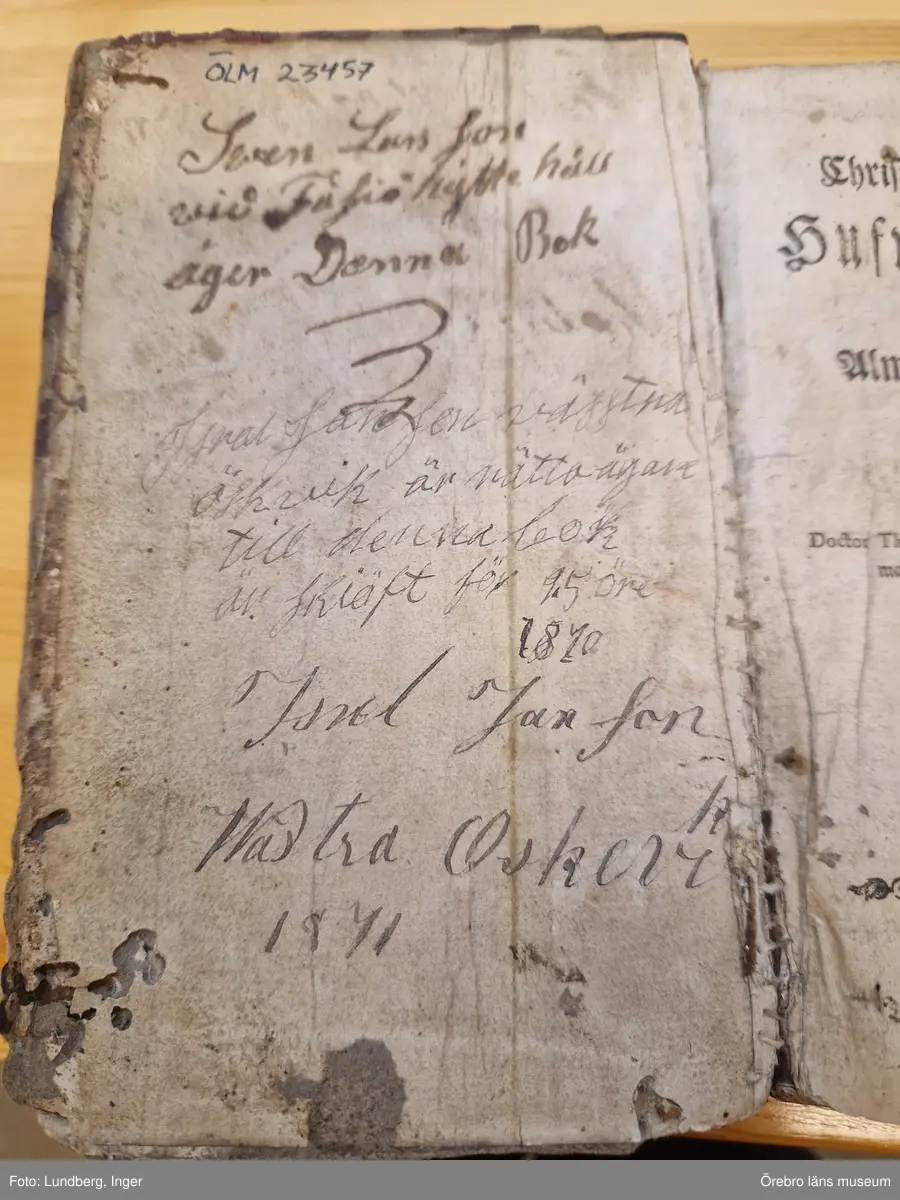 ÖLM 23457
Sven Lars son
vid Fåsiö hytte håll
äger Denna Bok
Jsral Jan Son västna
öskvik är rätta ägare
till denna bok
är skiäft för 95 öre
1870
Jsrel Jan Son
Wästra Oskervik
1871
Chris
Husf
Alm
Doctor Th
ma
Foto: Lundberg, Inger
Örebro läns museum